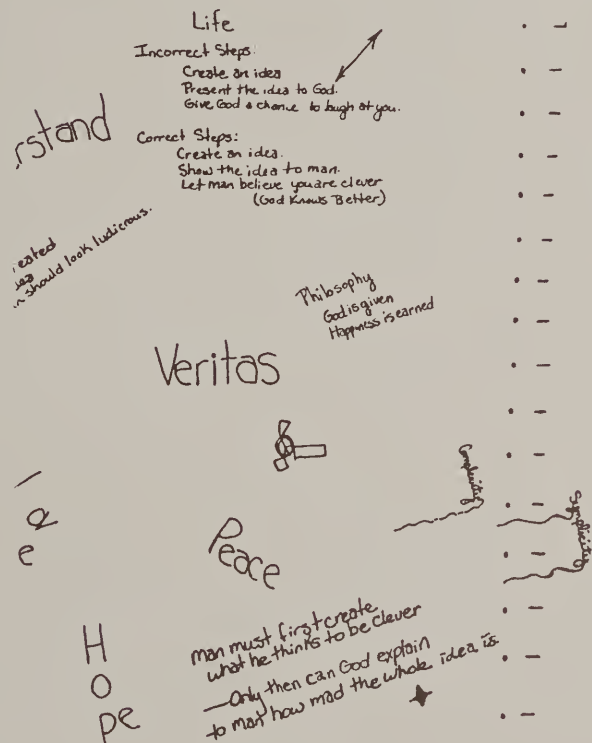 Life
Incorrect Steps:
Create an idea
Present the idea to God.
Give God a chance to laugh at you.
rstand
Correct Steps:
Create an idea.
Show the idea to man.
Let man believe you are clever
(God Knows Better)
eated
should look ludicrous.
Philosophy
God is given
Happiness is earned
Veritas
Complexity
Symplicity
e
Peace
man must first create
what he thinks to be clever
—Only then can God explain
to man how mad the whole idea is
H
o
pe